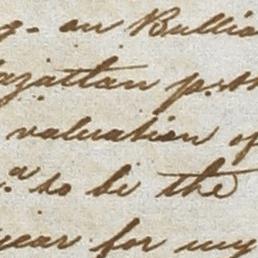 on Bullio
azatlan p. th
valuation of
a to be the
year for my